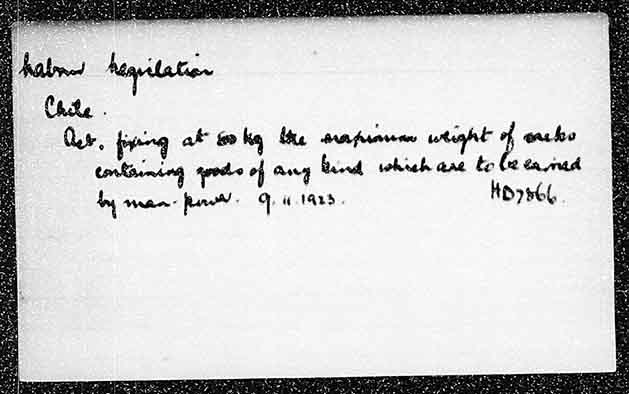 Labour Legislation
Chile.
Act. fixing at 80 kg the maximum weight of sacks
containing goods of any kind which are to be carried
by man-power. 9.11.1923. HD7866.